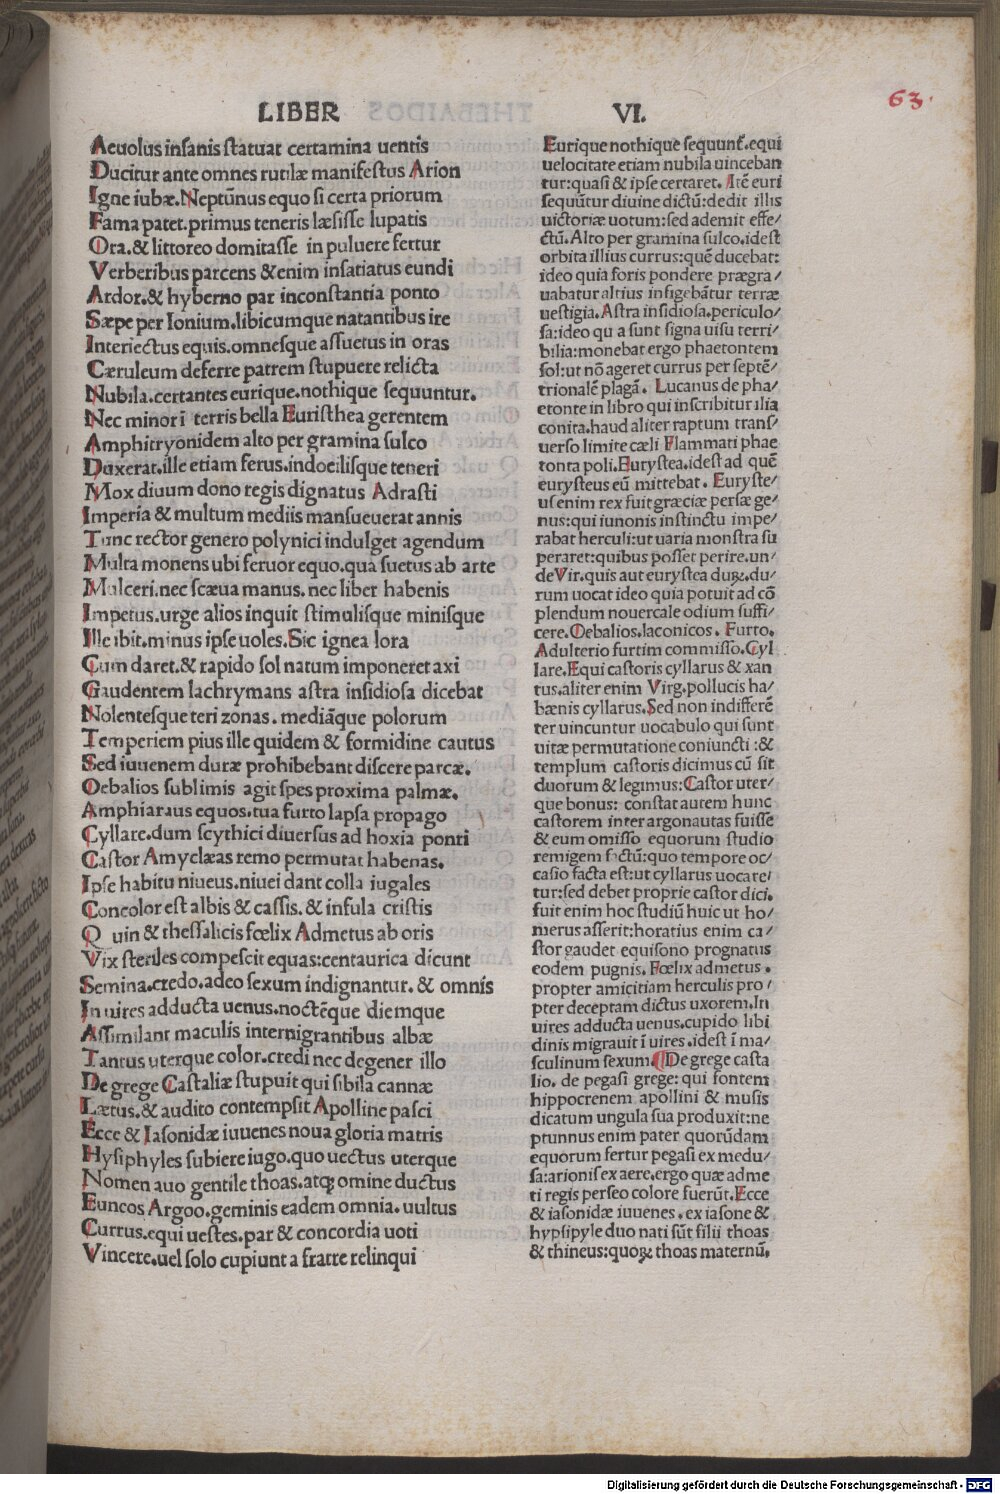 LIBER VI.
63.
Aeuolus insanis statuat certamina uentis
Ducitur ante omnes rutilæ manifestus Arion
Igne iubæ. Neptūnus equo si certa priorum
Fama patet. primus teneris læsisse lupatis
Ora. & littoreo domitasse in puluere fertur
Verberibus parcens & enim insatiatus eundi
Ardor. & hyberno par inconstantia ponto
Sæpe per Ionium. libicumque natantibus ire
Interiectus equis. omnesque assuetus in oras
Cæruleum deferre patrem stupuere relicta
Nubila. certantes eurique. nothique sequuntur.
Nec minori terris bella Euristhea gerentem
Amphitryonidem alto per gramina sulco
Duxerat. ille etiam ferus. indocilisque teneri
Mox diuum dono regis dignatus Adrasti
Imperia & multum mediis mansueuerat annis
Tunc rector genero polynici indulget agendum
Multa monens ubi feruor equo. qua suetus ab arte
Mulceri. nec scæua manus. nec liber habenis
Impetus. urge alios inquit stimulisque minisque
Ille ibit. minus ipse uoles. Sic ignea lora
Cum daret. & rapido sol natum imponeret axi
Gaudentem lachrymans astra insidiosa dicebat
Nolentesque teri zonas. mediāque polorum
Temperiem pius ille quidem & formidine cautus
Sed iuuenem duræ prohibebant discere parcæ.
Oebalios sublimis agit spes proxima palmæ.
Amphiaraus equos. tua furto lapsa propago
Cyllare. dum scythici diuersus ad hoxia ponti
Castor Amyclæas remo permutat habenas.
Ipse habitu niueus. niuei dant colla iugales
Concolor est albis & cassis. & infula cristis
Q uin & thessalicis fœlix Admetus ab oris
Vix steriles compescit equas: centaurica dicunt
Semina. credo. adeo sexum indignantur. & omnis
In uires adducta uenus. noctēque diemque
Assimilant maculis internigrantibus albæ
Tantus uterque color. credi nec degener illo
De grege Castaliæ stupuit qui sibila cannæ
Lætus. & audito contempsit Apolline pasci
Ecce & Iasonidæ iuuenes noua gloria matris
Hysiphyles subiere iugo. quo uectus uterque
Nomen auo gentile thoas. atqꝫ omine ductus
Euncos Argoo. geminis eadem omnia. uultus
Currus. equi uestes. par & concordia uoti
Vincere. uel solo cupiunt a fratre relinqui
Eurique nothique sequunt̄. equi
uelocitate etiam nubila uinceban
tur: quasi & ipse certaret. Atē euri
sequūtur diuine dictū: dedit illis
uictoriæ uotum: sed ademit effe/
ctū. Alto per gramina sulco. idest
orbita illius currus: quē ducebat:
ideo quia foris pondere prægra/
uabatur altius infigebātur terræ
uestigia. Astra insidiosa. periculo/
sa: ideo qu a sunt signa uisu terri/
bilia: monebat ergo phaetontem
sol: ut nō ageret currus per septē/
trionalē plagā. Lucanus de pha/
etonte in libro qui inscribitur ilia
conita. haud aliter raptum trans/
uerso limite cæli Flammati phae
tonta poli. Eurystea. idest ad quē
eurysteus eū mittebat. Euryste/
us enim rex fuit græciæ persæ ge/
nus: qui iunonis instinctu impe/
rabat herculi: ut uaria monstra su
peraret: quibus posset perire. un/
de Vir. quis aut eurystea durꝫ. du/
rum uocat ideo quia potuit ad cō
plendum nouercale odium suffi/
cere. Oebalios. laconicos. Furto.
Adulterio furtim commisso. Cyl
lare. Equi castoris cyllarus & xan
tus. aliter enim Virg. pollucis ha/
bænis cyllarus. Sed non indifferē
ter uincuntur uocabulo qui sunt
uitæ permutatione coniuncti: &
templum castoris dicimus cū sit
duorum & legimus: Castor uter/
que bonus: constat autem hunc
castorem inter argonautas fuisse
& eum omisso equorum studio
remigem factū: quo tempore oc/
casio facta est: ut cyllarus uocare/
tur: sed debet proprie castor dici.
fuit enim hoc studiū huic ut ho/
merus asserit: horatius enim ca/
stor gaudet equis ono prognatus
eodem pugnis. Fœlix admetus.
propter amicitiam herculis pro/
pter deceptam dictus uxorem. In
uires adducta uenus. cupido libi
dinis migrauit ī uires. idest ī ma/
sculinum sexum. ¶ De grege casta
lio. de pegasi grege: qui fontem
hippocrenem apollini & musis
dicatum ungula sua produxit: ne
ptunnus enim pater quorūdam
equorum fertur pegasi ex medu/
sa: arionis ex aere. ergo quæ adme
ti regis perseo colore fuerūt. Ecce
& iasonidæ iuuenes. ex iasone &
hypsipyle duo nati sūt filii thoas
& thineus: quoꝝ thoas maternū.
Digitalisierung gefördert durch die Deutsche Forschungsgemeinschaft - DFG